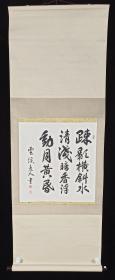 疎影横斜水
清浅暗香浮
動月黄昏